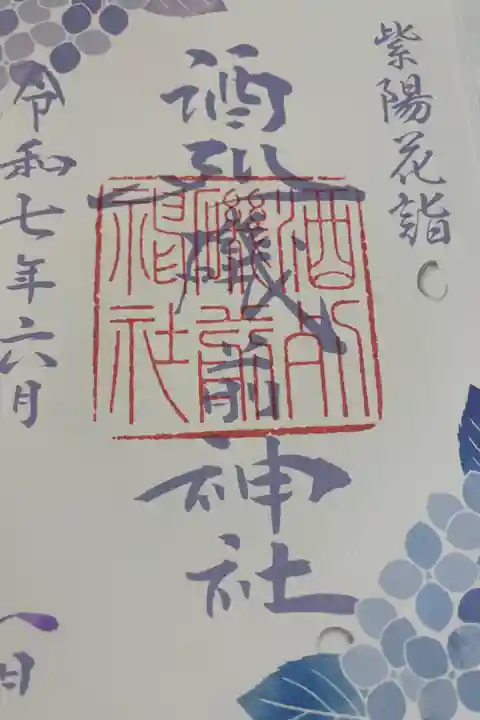 紫陽花詣
酒列磯前神社
酒列
磯前
神社
令和七年六月